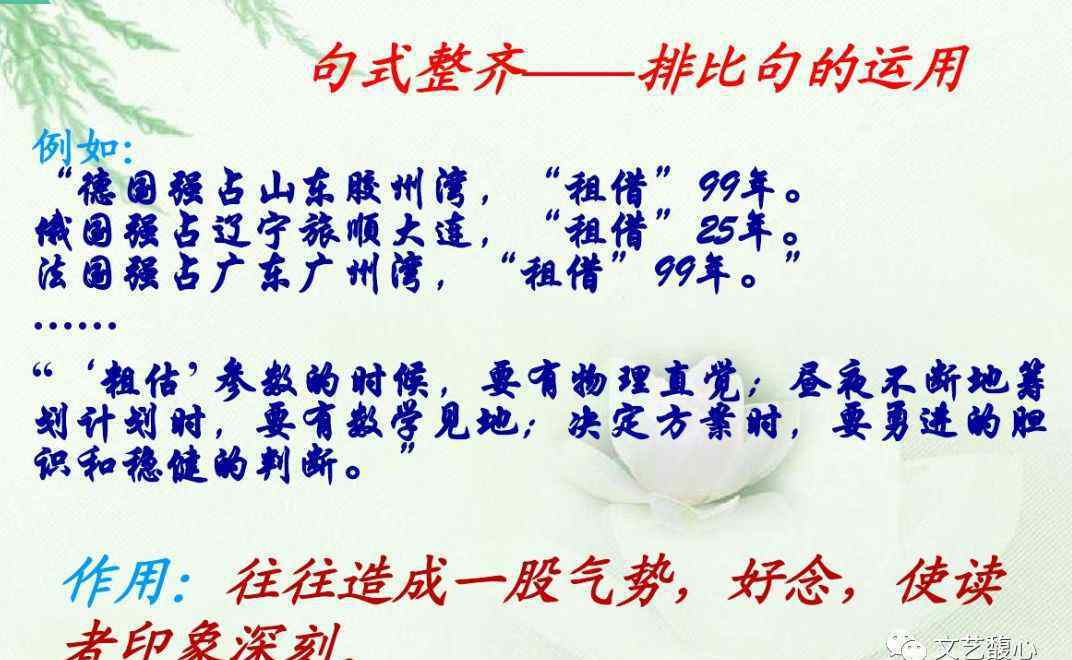 句式整齐——排比句的运用
例如：
“德国强占山东胶州湾，“租借”99年。
俄国强占辽宁旅顺大连，“租借”25年。
法国强占广东广州湾，“租借”99年。”
……
“‘粗估’参数的时候，要有物理直觉；昼夜不断地筹
划计划时，要有数学见地；决定方案时，要勇进的胆
识和稳健的判断。”
作用：往往造成一股气势，好念，使读
者印象深刻。
文艺馥心